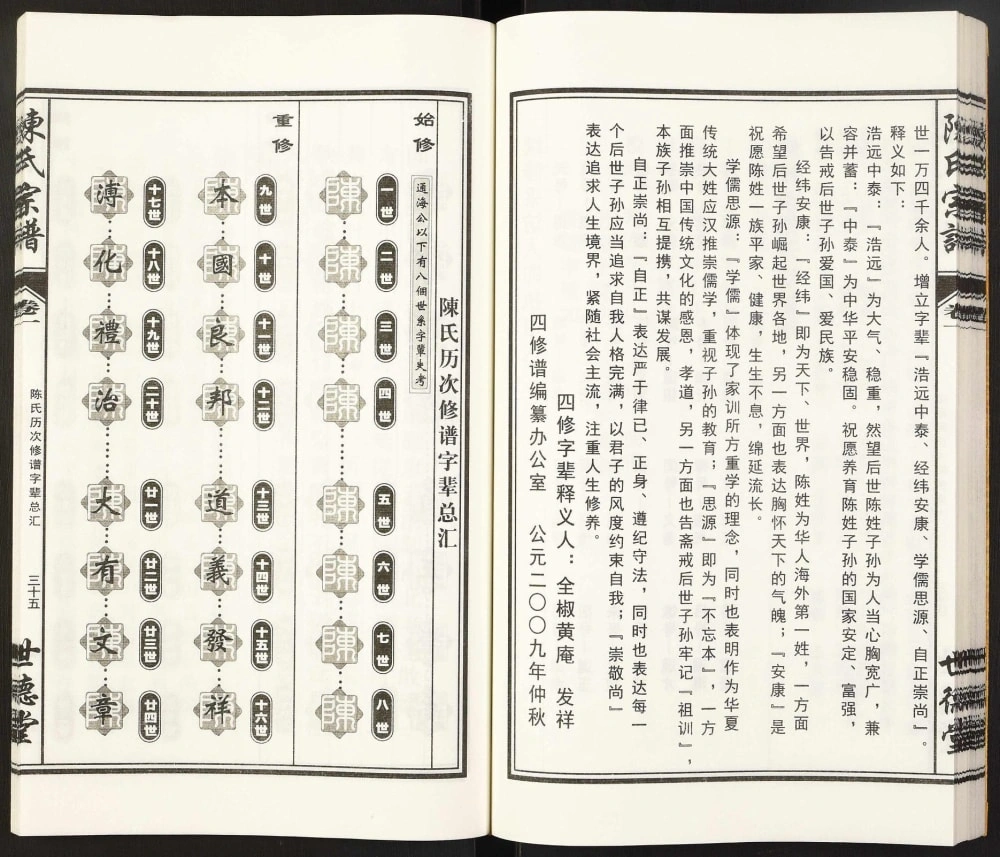 世一万四千余人。增立字辈『浩远中泰、经纬安康、学儒思源、自正崇尚』。
释义如下：
浩远中泰：『浩远』为大气、稳重，然望后世陈姓子孙为人当心胸宽广，兼
容并蓄：『中泰』为中华平安稳固。祝愿养育陈姓子孙的国家安定、富强，
以告戒后世子孙爱国、爱民族。
经纬安康：『经纬』即为天下、世界，陈姓为华人海外第一姓，一方面
希望后世子孙崛起世界各地，另一方面也表达胸怀天下的气魄；『安康』是
祝愿陈姓一族平家、健康，生生不息，绵延流长。
学儒思源：『学儒』体现了家训所方重学的理念，同时也表明作为华夏
传统大姓应汉推崇儒学，重视子孙的教育；『思源』即为『不忘本』，一方
面推崇中国传统文化的感恩，孝道，另一方面也告斋戒后世子孙牢记『祖训』，
本族子孙相互提携，共谋发展。
自正崇尚：『自正』表达严于律已、正身、遵纪守法，同时也表达每一
个后世子孙应当追求自我人格完满，以君子的风度约束自我；『崇敬尚』
表达追求人生境界，紧随社会主流，注重人生修养。
四修字辈释义人：全椒黄庵 发祥
四修谱编纂办公室 公元二〇〇九年仲秋
世德堂
陳氏历次修谱字辈总汇
始修
通海公以下有八個世系字輩失考
一世 陳
二世 陳
三世 陳
四世 陳
五世 陳
六世 陳
七世 陳
八世 陳
重修
九世 本
十世 國
十一世 良
十二世 邦
十三世 道
十四世 義
十五世 發
十六世 祥
十七世 溥
十八世 化
十九世 禮
二十世 治
廿一世 大
廿二世 有
廿三世 文
廿四世 章
陳氏宗譜
卷一
陈氏历次修谱字辈总汇
三十五
世德堂